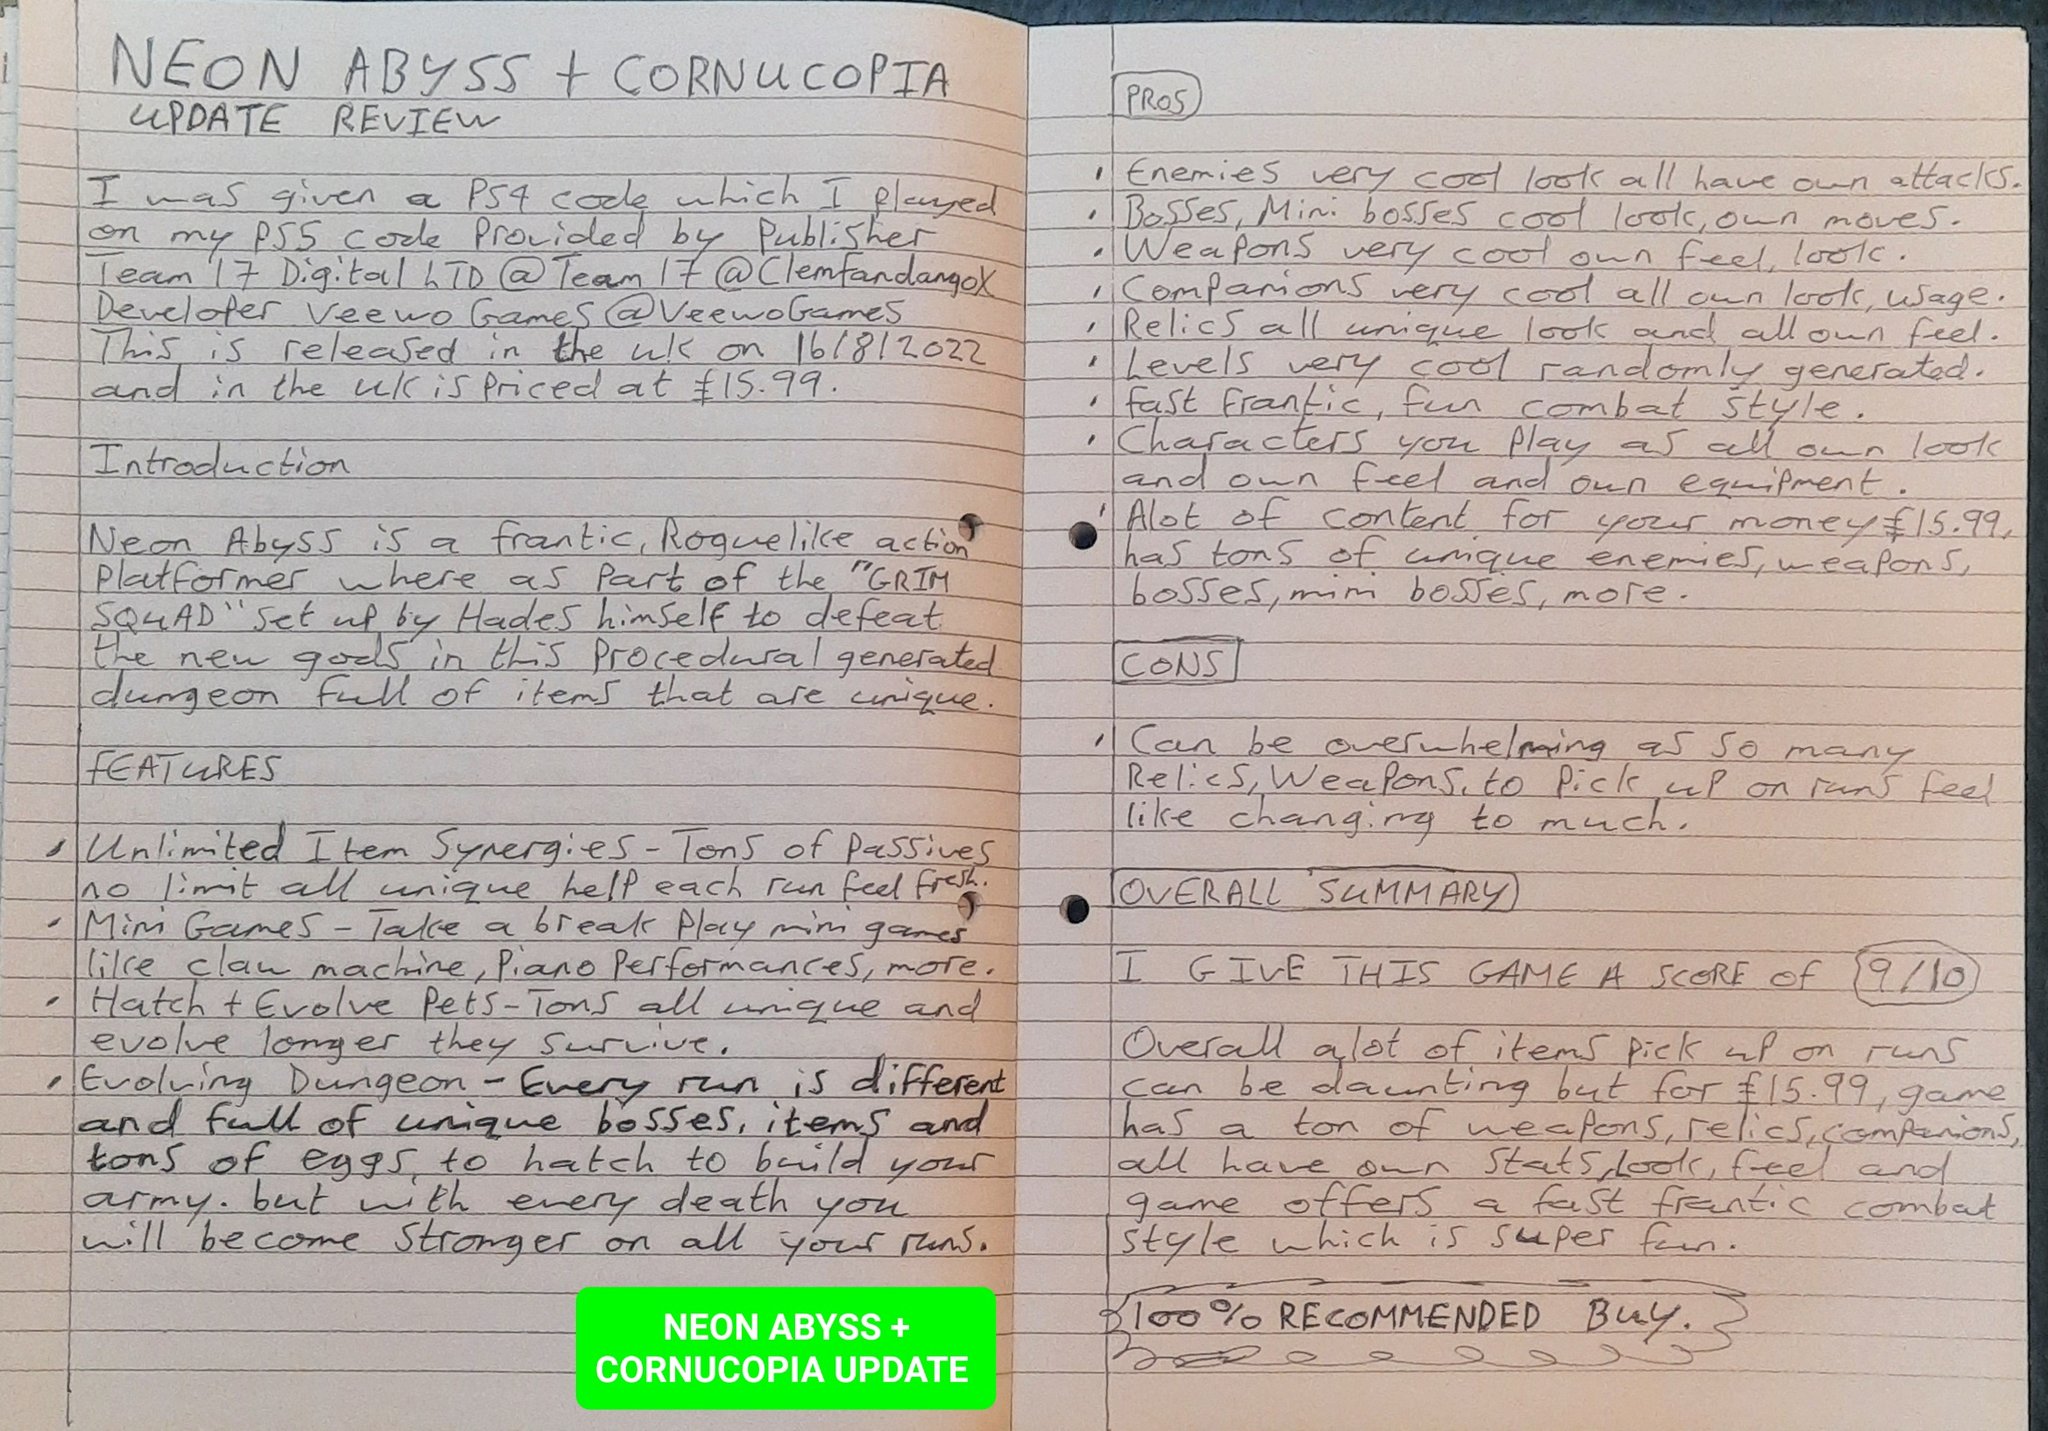 NEON ABYSS + CORNUCOPIA
UPDATE REVIEW
I was given a PS4 code which I played
on my PS5 code Provided by Publisher
Team 17 Digital LTD @Team17 @ClemfandangoX
Developer Veewo Games @VeewoGames
This is released in the UK on 16/8/2022
and in the UK is Priced at £15.99.
Introduction
Neon Abyss is a frantic, Roguelike action
Platformer where as Part of the "GRIM
SQUAD" set up by Hades himself to defeat
the new gods in this Procedural generated
dungeon full of items that are unique.
FEATURES
• Unlimited Item Synergies - Tons of Passives
no limit all unique help each run feel fresh.
• Mini Games - Take a break Play mini games
like claw machine, Piano Performances, more.
• Hatch + Evolve Pets - Tons all unique and
evolve longer they survive.
• Evolving Dungeon - Every run is different
and full of unique bosses, items and
tons of eggs, to hatch to build your
army. but with every death you
will become Stronger on all your runs.
PROS
• Enemies very cool look all have own attacks.
• Bosses, Mini bosses cool look, own moves.
• Weapons very cool own feel, look.
• Companions very cool all own look, usage.
• Relics all unique look and all own feel.
• Levels very cool randomly generated.
• fast frantic, fun combat style.
• Characters you Play as all own look
and own feel and own equipment.
• Alot of content for your money £15.99,
has tons of unique enemies, weapons,
bosses, mini bosses, more.
CONS
• Can be overwhelming as so many
Relics, Weapons, to Pick up on runs feel
like changing to much.
OVERALL SUMMARY
I GIVE THIS GAME A SCORE OF 9/10
Overall alot of items Pick up on runs
can be daunting but for £15.99, game
has a ton of weapons, relics, companions,
all have own Stats, look, feel and
game offers a fast frantic combat
style which is super fun.
100% RECOMMENDED BUY.
NEON ABYSS +
CORNUCOPIA UPDATE